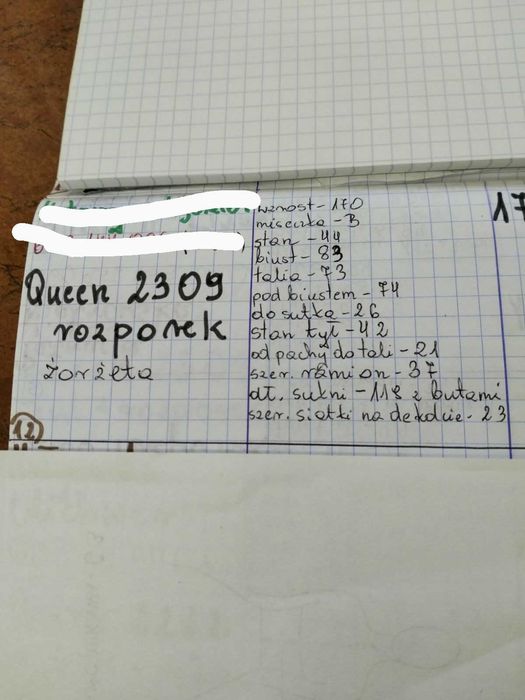 Queen 2309
rozporek
żorżeta
12
wzrost - 170
miseczka - B
stan - 44
biust - 83
talia - 73
pod biustem - 74
do sutka - 26
stan tył - 42
od pachy do tali - 21
szer. ramion - 37
dł. sukni - 118 z butami
szer. siatki na dekolcie - 23
17